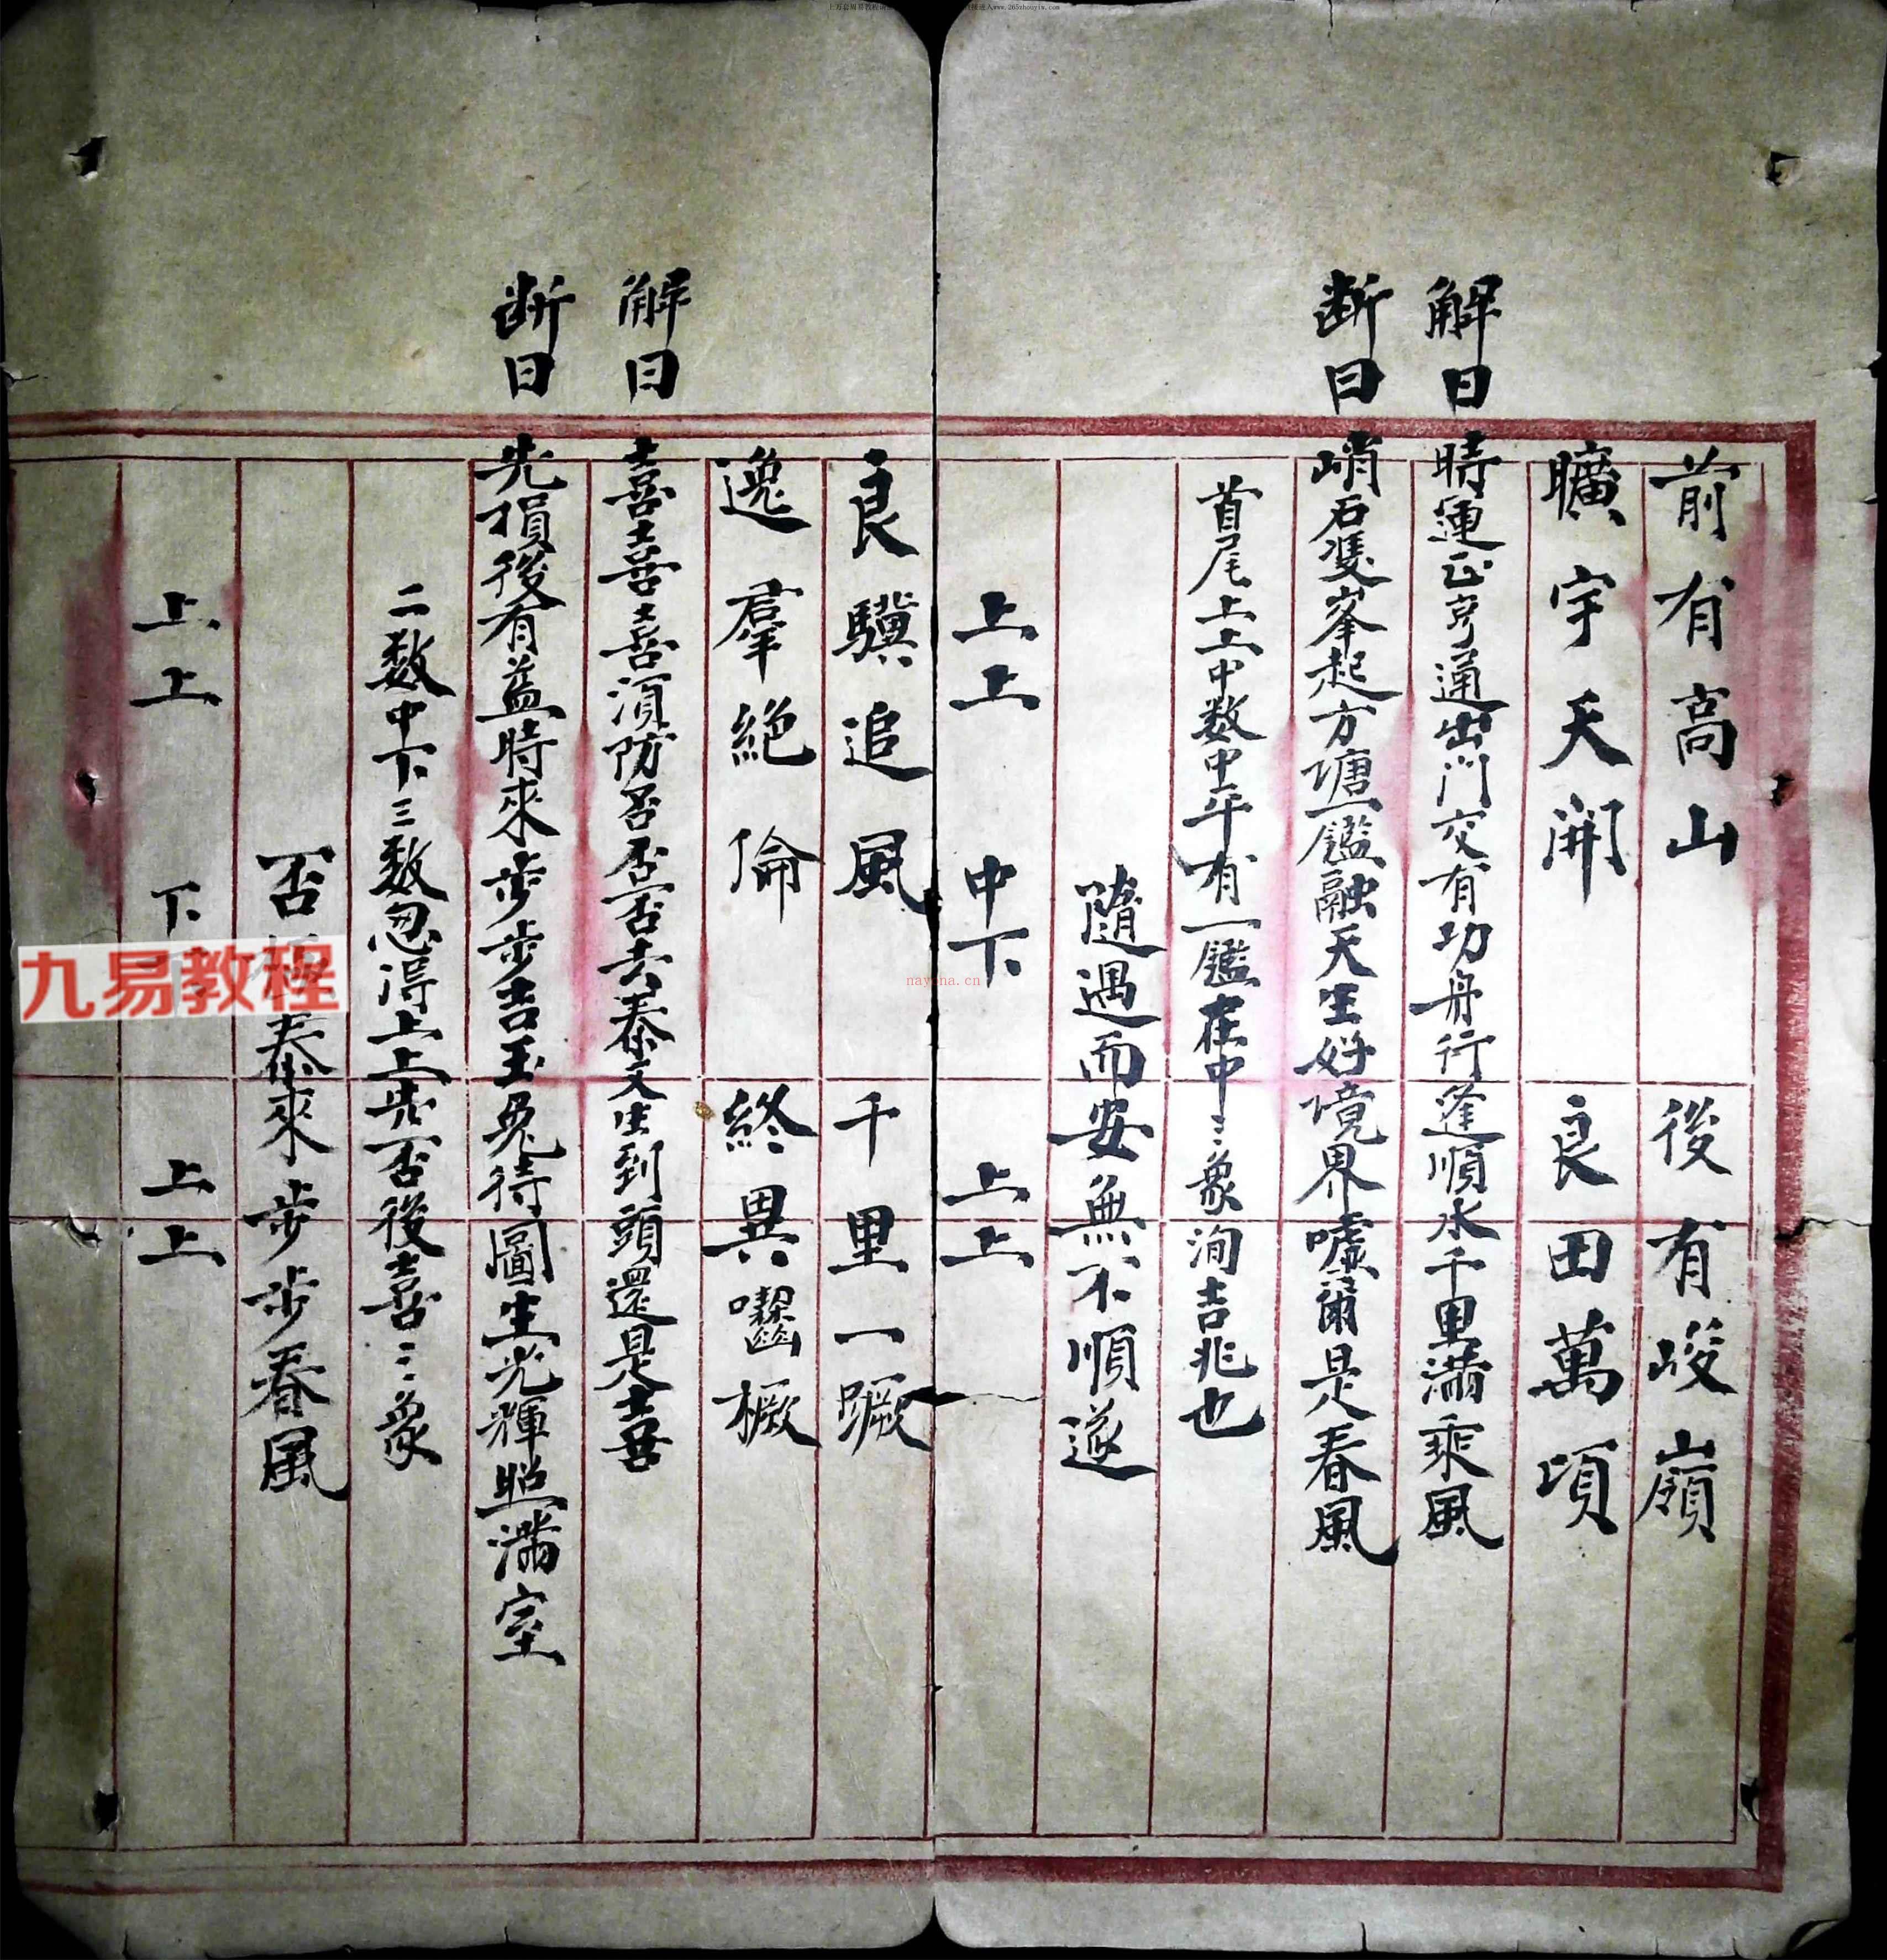 前有高山 後有峻嶺
曠宇天開 良田萬頃
解曰 時運正亨通出門交有功舟行逢順水千里滿乘風
断曰 峭石雙峯起方塘一鑑融天生好境界噓爾是春風
首尾上上中数中平有一鑑在中三象洵吉兆也
隨遇而安無不順遂
上上 中下 上上
良驥追風 千里一蹶
逸羣絶倫 終異囓橛
解曰 喜喜喜須防否否否去泰又生到頭還是喜
断曰 先損後有益時來步步吉玉兔待圖生光輝照滿室
二数中下三数忽淂上上先否後喜三象
否 泰來步步春風
上上 下 上上
九易教程
nayona.cn
www.265zhouyiw.com